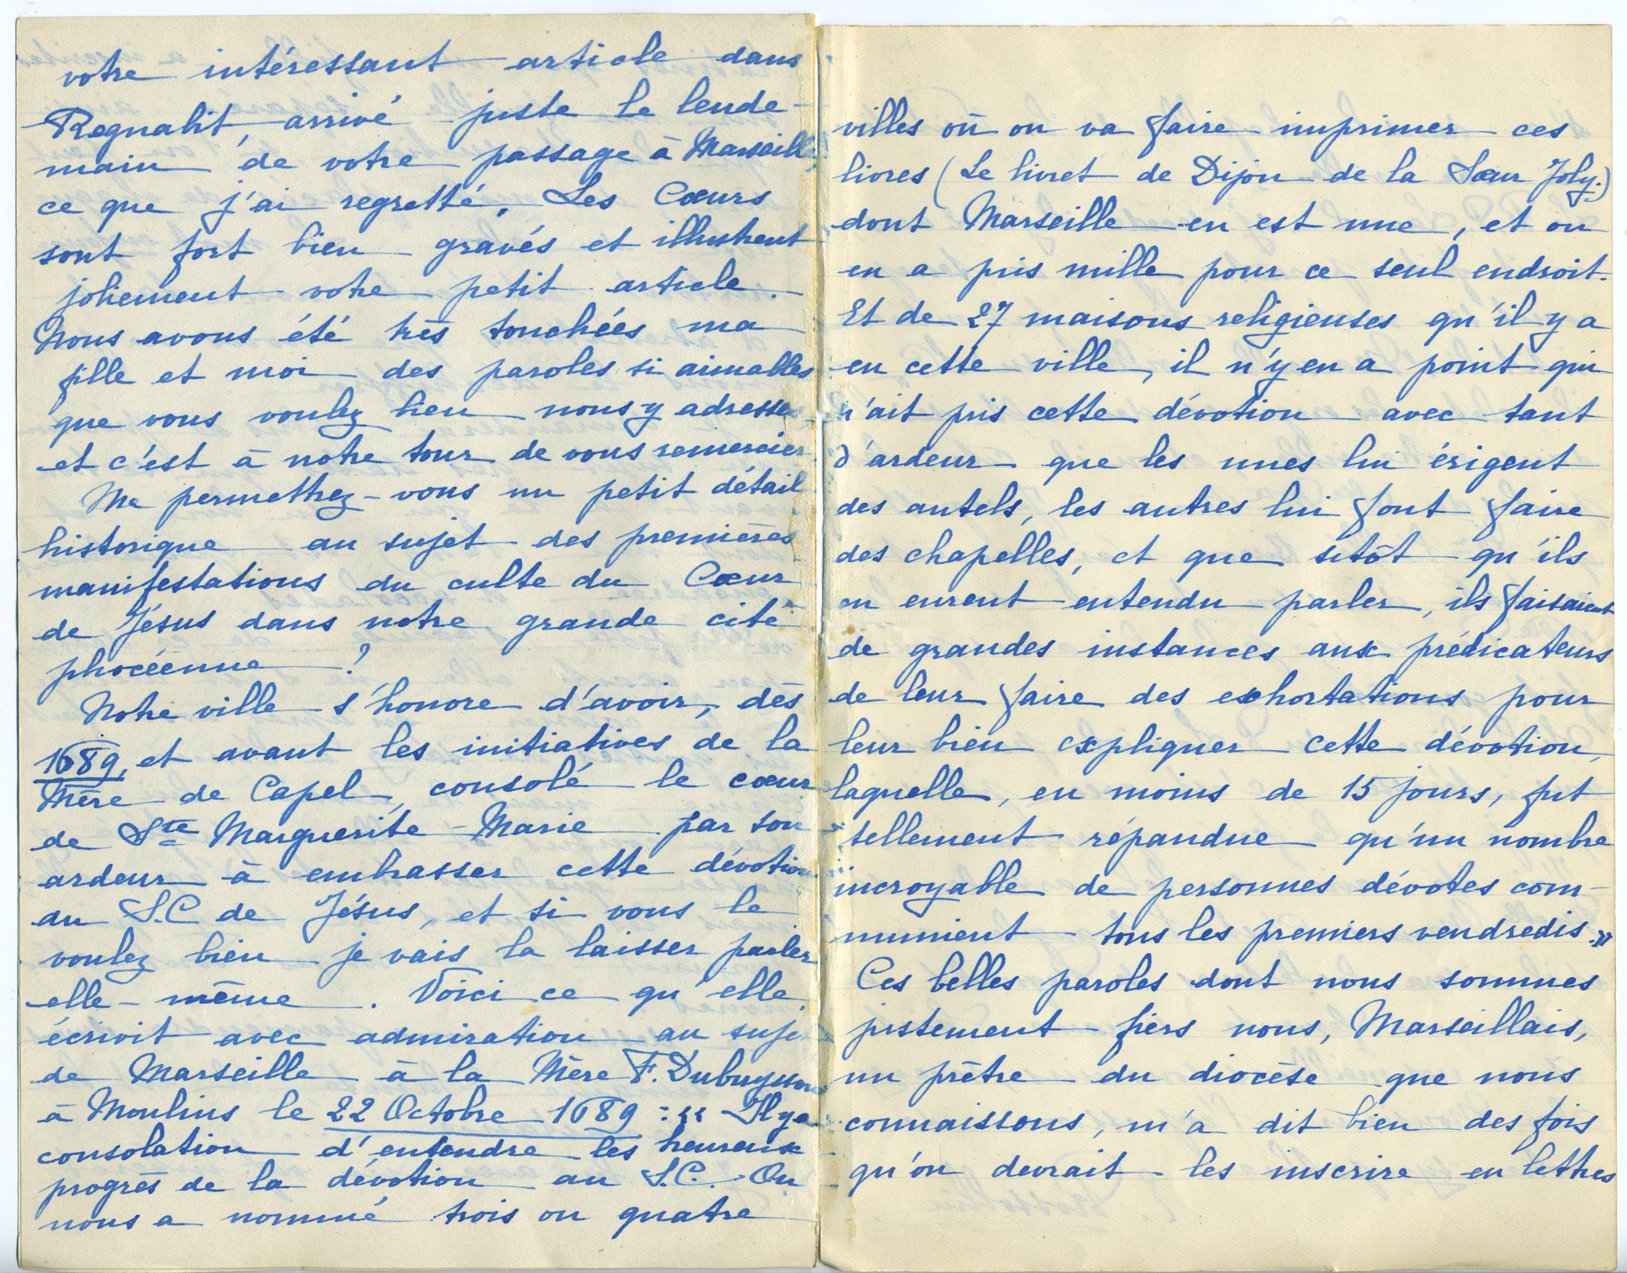 votre intéressant article dans
Regnabit, arrivé juste le lende-
main de votre passage à Marseill
ce que j'ai regretté. Les Cœurs
sont fort bien gravés et illustrent
joliement votre petit article.
Nous avons été très touchées ma
fille et moi des paroles si aimables
que vous voulez bien nous y adresse
et c'est à notre tour de vous remercier
Me permettrez-vous un petit détail
historique au sujet des premières
manifestations du culte du Cœur
de Jésus dans notre grande cité
phocéenne ?
Notre ville s'honore d'avoir, dès
1689, et avant les initiatives de la
Mère de Capel, consolé le cœur
de Ste Marguerite-Marie par son
ardeur à embrasser cette dévotion
au S.C de Jésus, et si vous le
voulez bien je vais la laisser parler
elle-même. Voici ce qu'elle
écrivit avec admiration au suje
de Marseille à la Mère F. Dubuysson
à Moulins le 22 Octobre 1689 : « Il y a
consolation d'entendre les heureux
progrès de la dévotion au S.C. On
nous a nommé trois ou quatre
villes où on va faire imprimer ces
livres (Le livret de Dijon de la Sœur Joly.)
dont Marseille en est une, et on
en a pris mille pour ce seul endroit.
Et de 27 maisons religieuses qu'il y a
en cette ville, il n'y en a point qui
n'ait pris cette dévotion avec tant
d'ardeur que les unes lui érigent
des autels, les autres lui font faire
des chapelles, et que sitôt qu'ils
en eurent entendu parler, ils faisaient
de grandes instances aux prédicateurs
de leur faire des exhortations pour
leur bien expliquer cette dévotion,
laquelle, en moins de 15 jours, fut
tellement répandue qu'un nombre
incroyable de personnes dévotes com-
munient tous les premiers vendredis.»
Ces belles paroles dont nous sommes
justement fiers nous, Marseillais,
un prêtre du diocèse que nous
connaissons, m'a dit bien des fois
qu'on devrait les inscrire en lettres